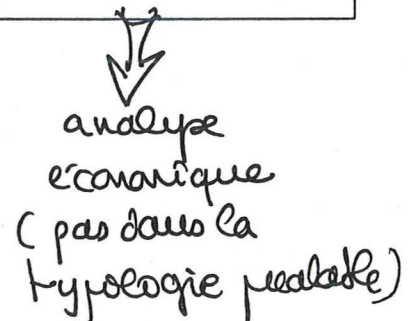 analyse
économique
(pas dans la
typologie préalable)